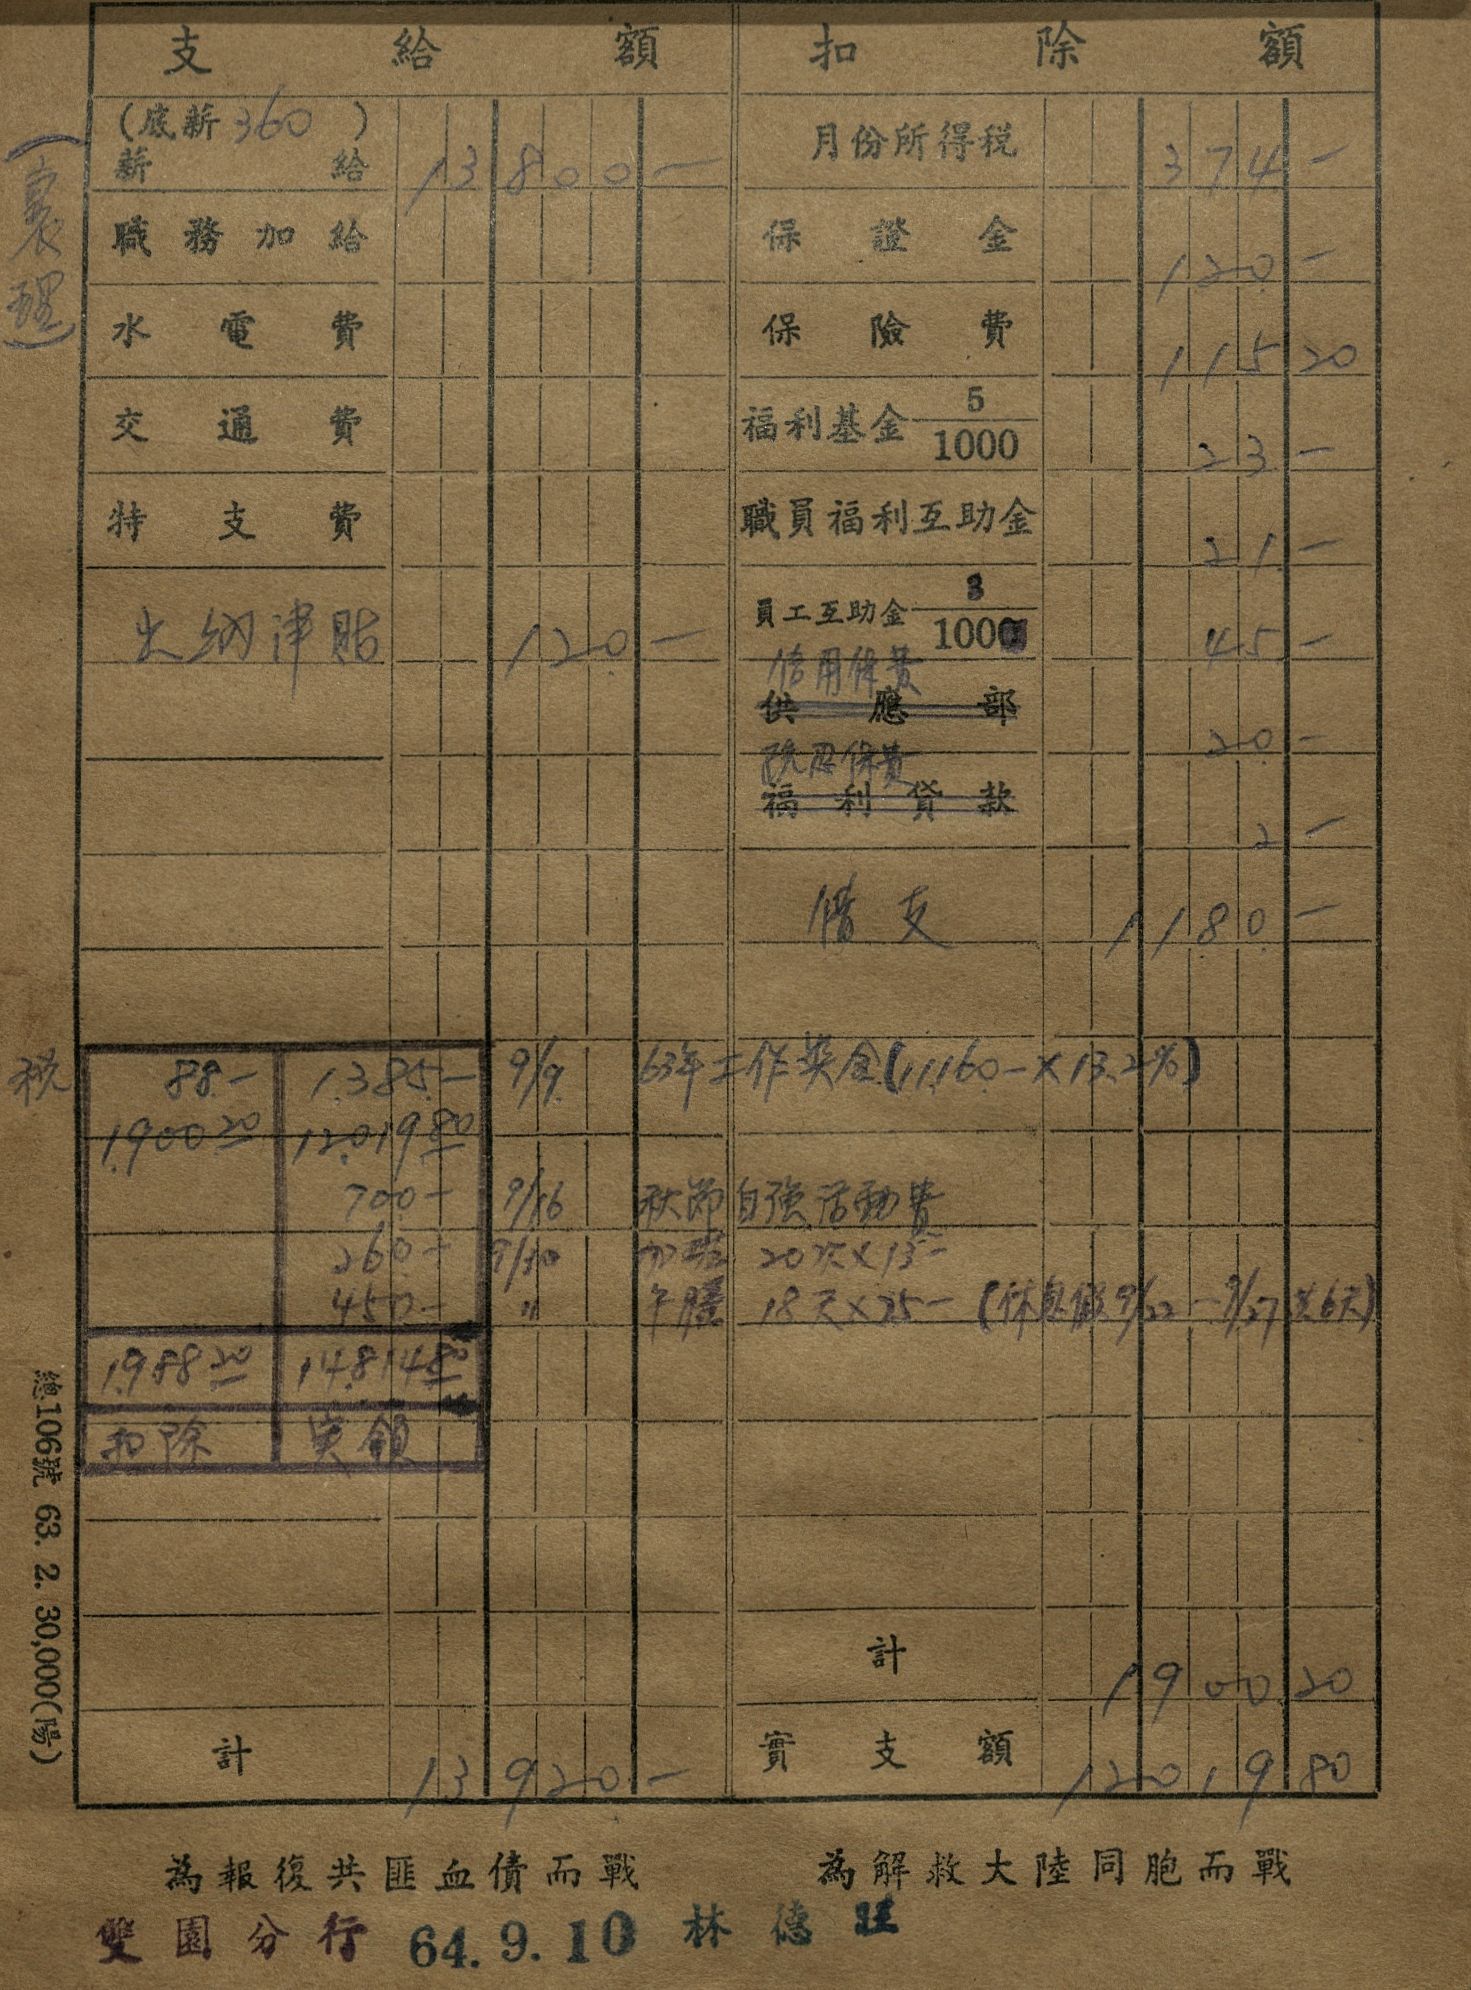 支給額 扣除額
(底薪360)
薪給 13800—
月份所得稅 374—
職務加給
保證金 120—
水電費
保險費 115 20
交通費
福利基金 5/1000 23—
特支費
職員福利互助金 21—
出納津貼 120—
員工互助金 3/100 45—
信用保費
供應部 20—
福利貸款 2—
借支 1180—
稅 88.— 1,385.— 9/9 63年工作奖金(11,160.—×13.2%)
1,900 20 12,019 80
700.— 9/16 秋節自强活動費
260.— 9/30 加班 20次×13—
450.— 〃 午膳 18天×25— (休息假9/22—9/27共6天)
1,988 20 14,814 80
扣除 实領
計 1900 20
計 13920.—
實支額 12019 80
為報復共匪血債而戰 為解救大陸同胞而戰
雙園分行 64.9.10 林德旺
總106號 63. 2. 30,000(陽)